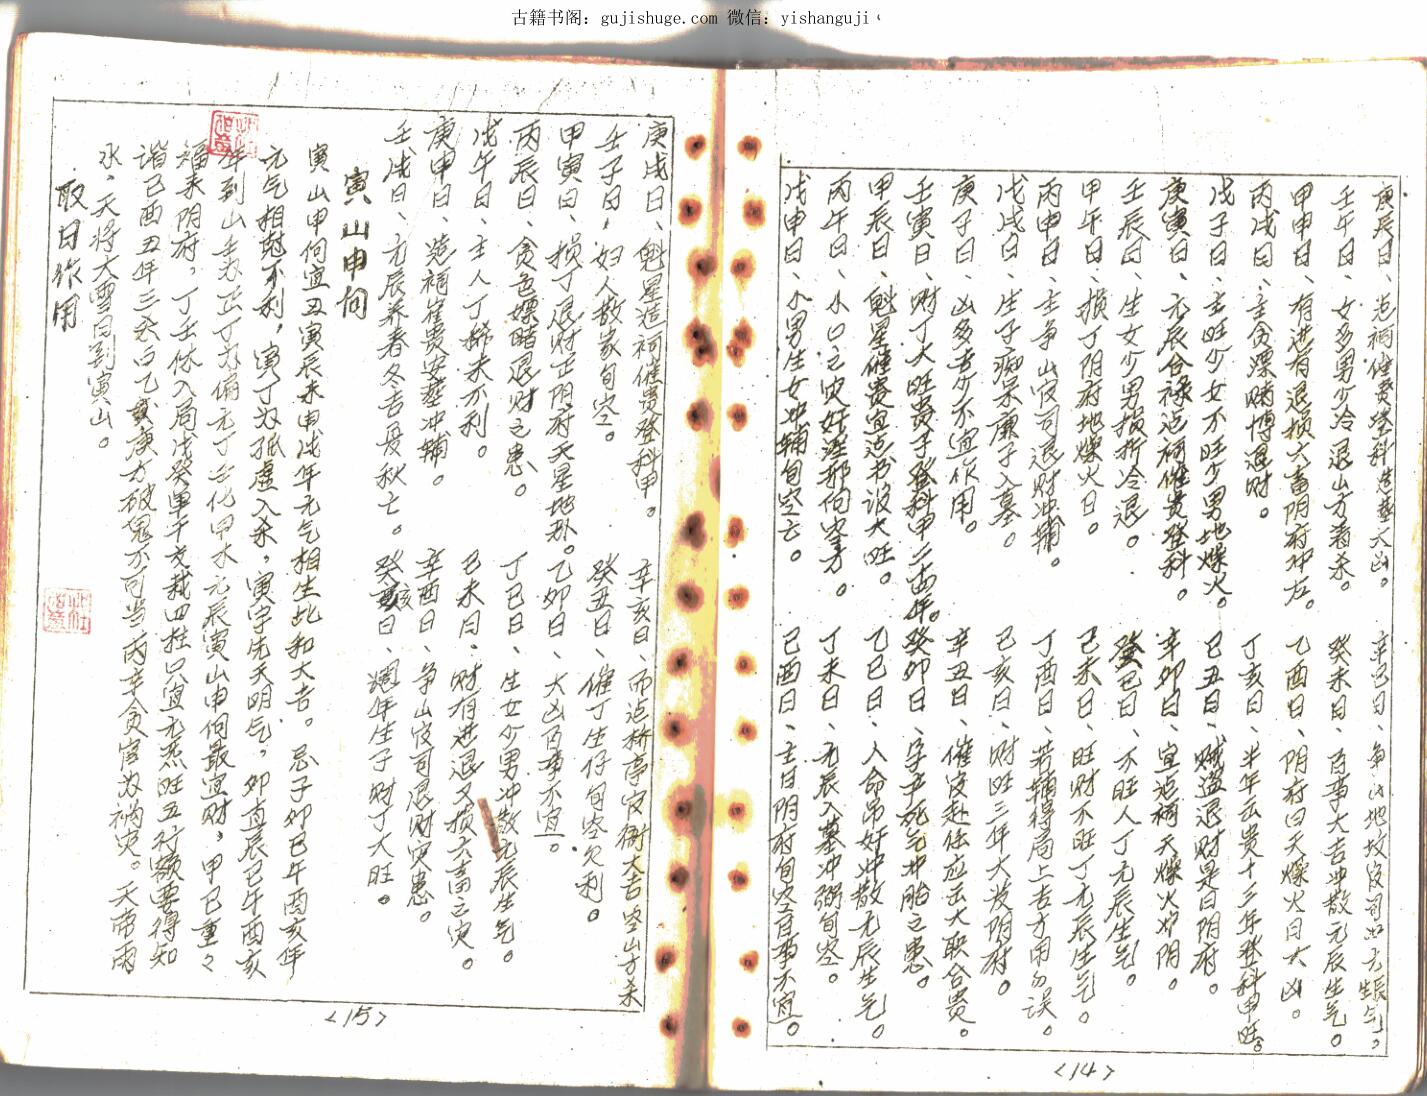 古籍书阁: gujishuge.com 微信: yishanguji
庚辰日、造祠催贵登科造葬大凶。 辛巳日、争山地坟官司出元辰生气。
壬午日、女多男少冷退山方着杀。 癸未日、百事大吉冲散元辰生气。
甲申日、有进有退损六畜阴府冲左。 乙酉日、阴府曰天燥火日大凶。
丙戌日、主贪漂赌博退财。 丁亥日、半年云贵十三年登科甲旺。
戊子日、主旺少女不旺少男地燥火。 己丑日、贼盗退财是日阴府。
庚寅日、元辰合禄造祠催贵登科。 辛卯日、宜造祠天燥火炉阴。
壬辰日、生女少男损折冷退。 癸巳日、不旺人丁元辰生气。
甲午日、损丁阴府地燥火日。 己未日、旺财不旺丁元辰生气。
丙申日、主争山官司退财冲辅。 丁酉日、若辅得局上吉方用勿误。
戊戌日、生子痴呆庚子入墓。 己亥日、财旺三年大发阴府。
庚子日、凶多吉少不宜作用。 辛丑日、催官赴任应云大取合贵。
壬寅日、财丁大旺贵子登科甲二百年。 癸卯日、孕产死气冲胎之患。
甲辰日、魁星催贵宜造书设大旺。 乙巳日、入命昂奸冲散元辰生气。
丙午日、小口之灾奸淫邪向空方。 丁未日、元辰入墓冲弼旬空。
戊申日、小男生女冲辅旬空亡。 己酉日、主日阴府旬空百事不宜。
<14>
庚戌日、魁星造祠催贵登科甲。 辛亥日、而造桥亭官衙大吉空山方杀
壬子日，妇人散家旬空。 癸丑日、催丁生仔旬空欠利。
甲寅日、损丁退财正阴府天星地卦。 乙卯日、大凶百事不宜。
丙辰日、贪色嫖赌退财之患。 丁巳日、生女少男冲散元辰生气。
戊午日、主人丁稀未不利。 己未日、财有进退又损六畜之灾。
庚申日、造祠崔贵安葬冲辅。 辛酉日、争山官司退财灾患。
壬戌日、元辰养春冬吉夏秋亡。 癸亥日、周年生子财丁大旺。
寅山申向
寅山申向宜丑寅辰未申戌年元气相生比和大吉。忌子卯巳午酉亥年
元气相克不利，寅丁为孤虚入杀，寅字先天明气，卯直辰巳午酉亥
年到山壬为正丁为偏元丁壬化甲木元辰寅山申向最宜财，甲己重々
福来阴府，丁壬休入局戊癸甲干支栽四柱只宜元炁旺五行额要得知
诸己酉丑年三杀曰乙亥庚方破鬼不可当丙辛贪官为祸灾。天帝雨
水，天将大雪同到寅山。
取日作用
<15>